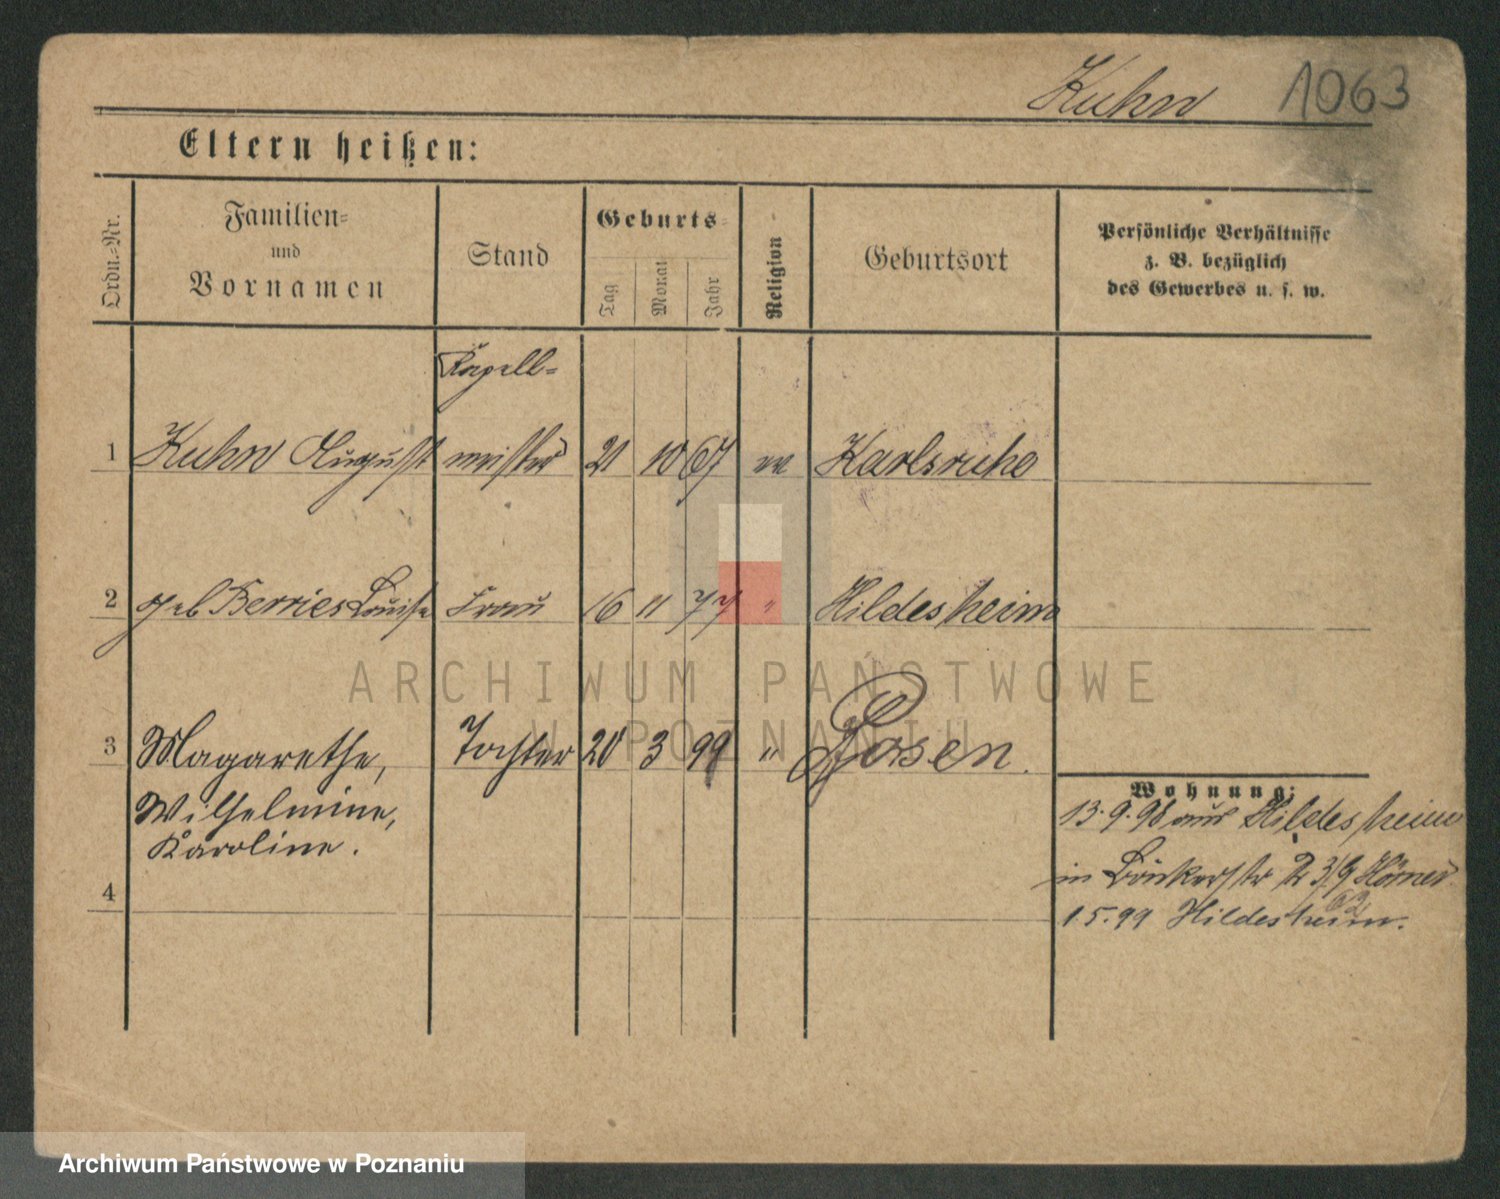 Kuhn 1063
Eltern heißen:
Ordn.-Nr. Familien- und Vornamen Stand Geburts- Tag Monat Jahr Religion Geburtsort Persönliche Verhältnisse z. B. bezüglich des Gewerbes u. s. w.
Kapell-
1 Kuhn August meister 21 10 67 ev Karlsruhe
2 geb Berries Louise Frau 16 11 77 " Hildesheim
ARCHIWUM PAŃSTWOWE
W POZNANIU
3 Magarethe, Tochter 20 3 99 " Posen.
Wohnung:
Wilhelmine, 13.9.98 aus Hildesheim
Karoline.
in 2 3/9
4
1.5.99 Hildesheim.
Archiwum Państwowe w Poznaniu